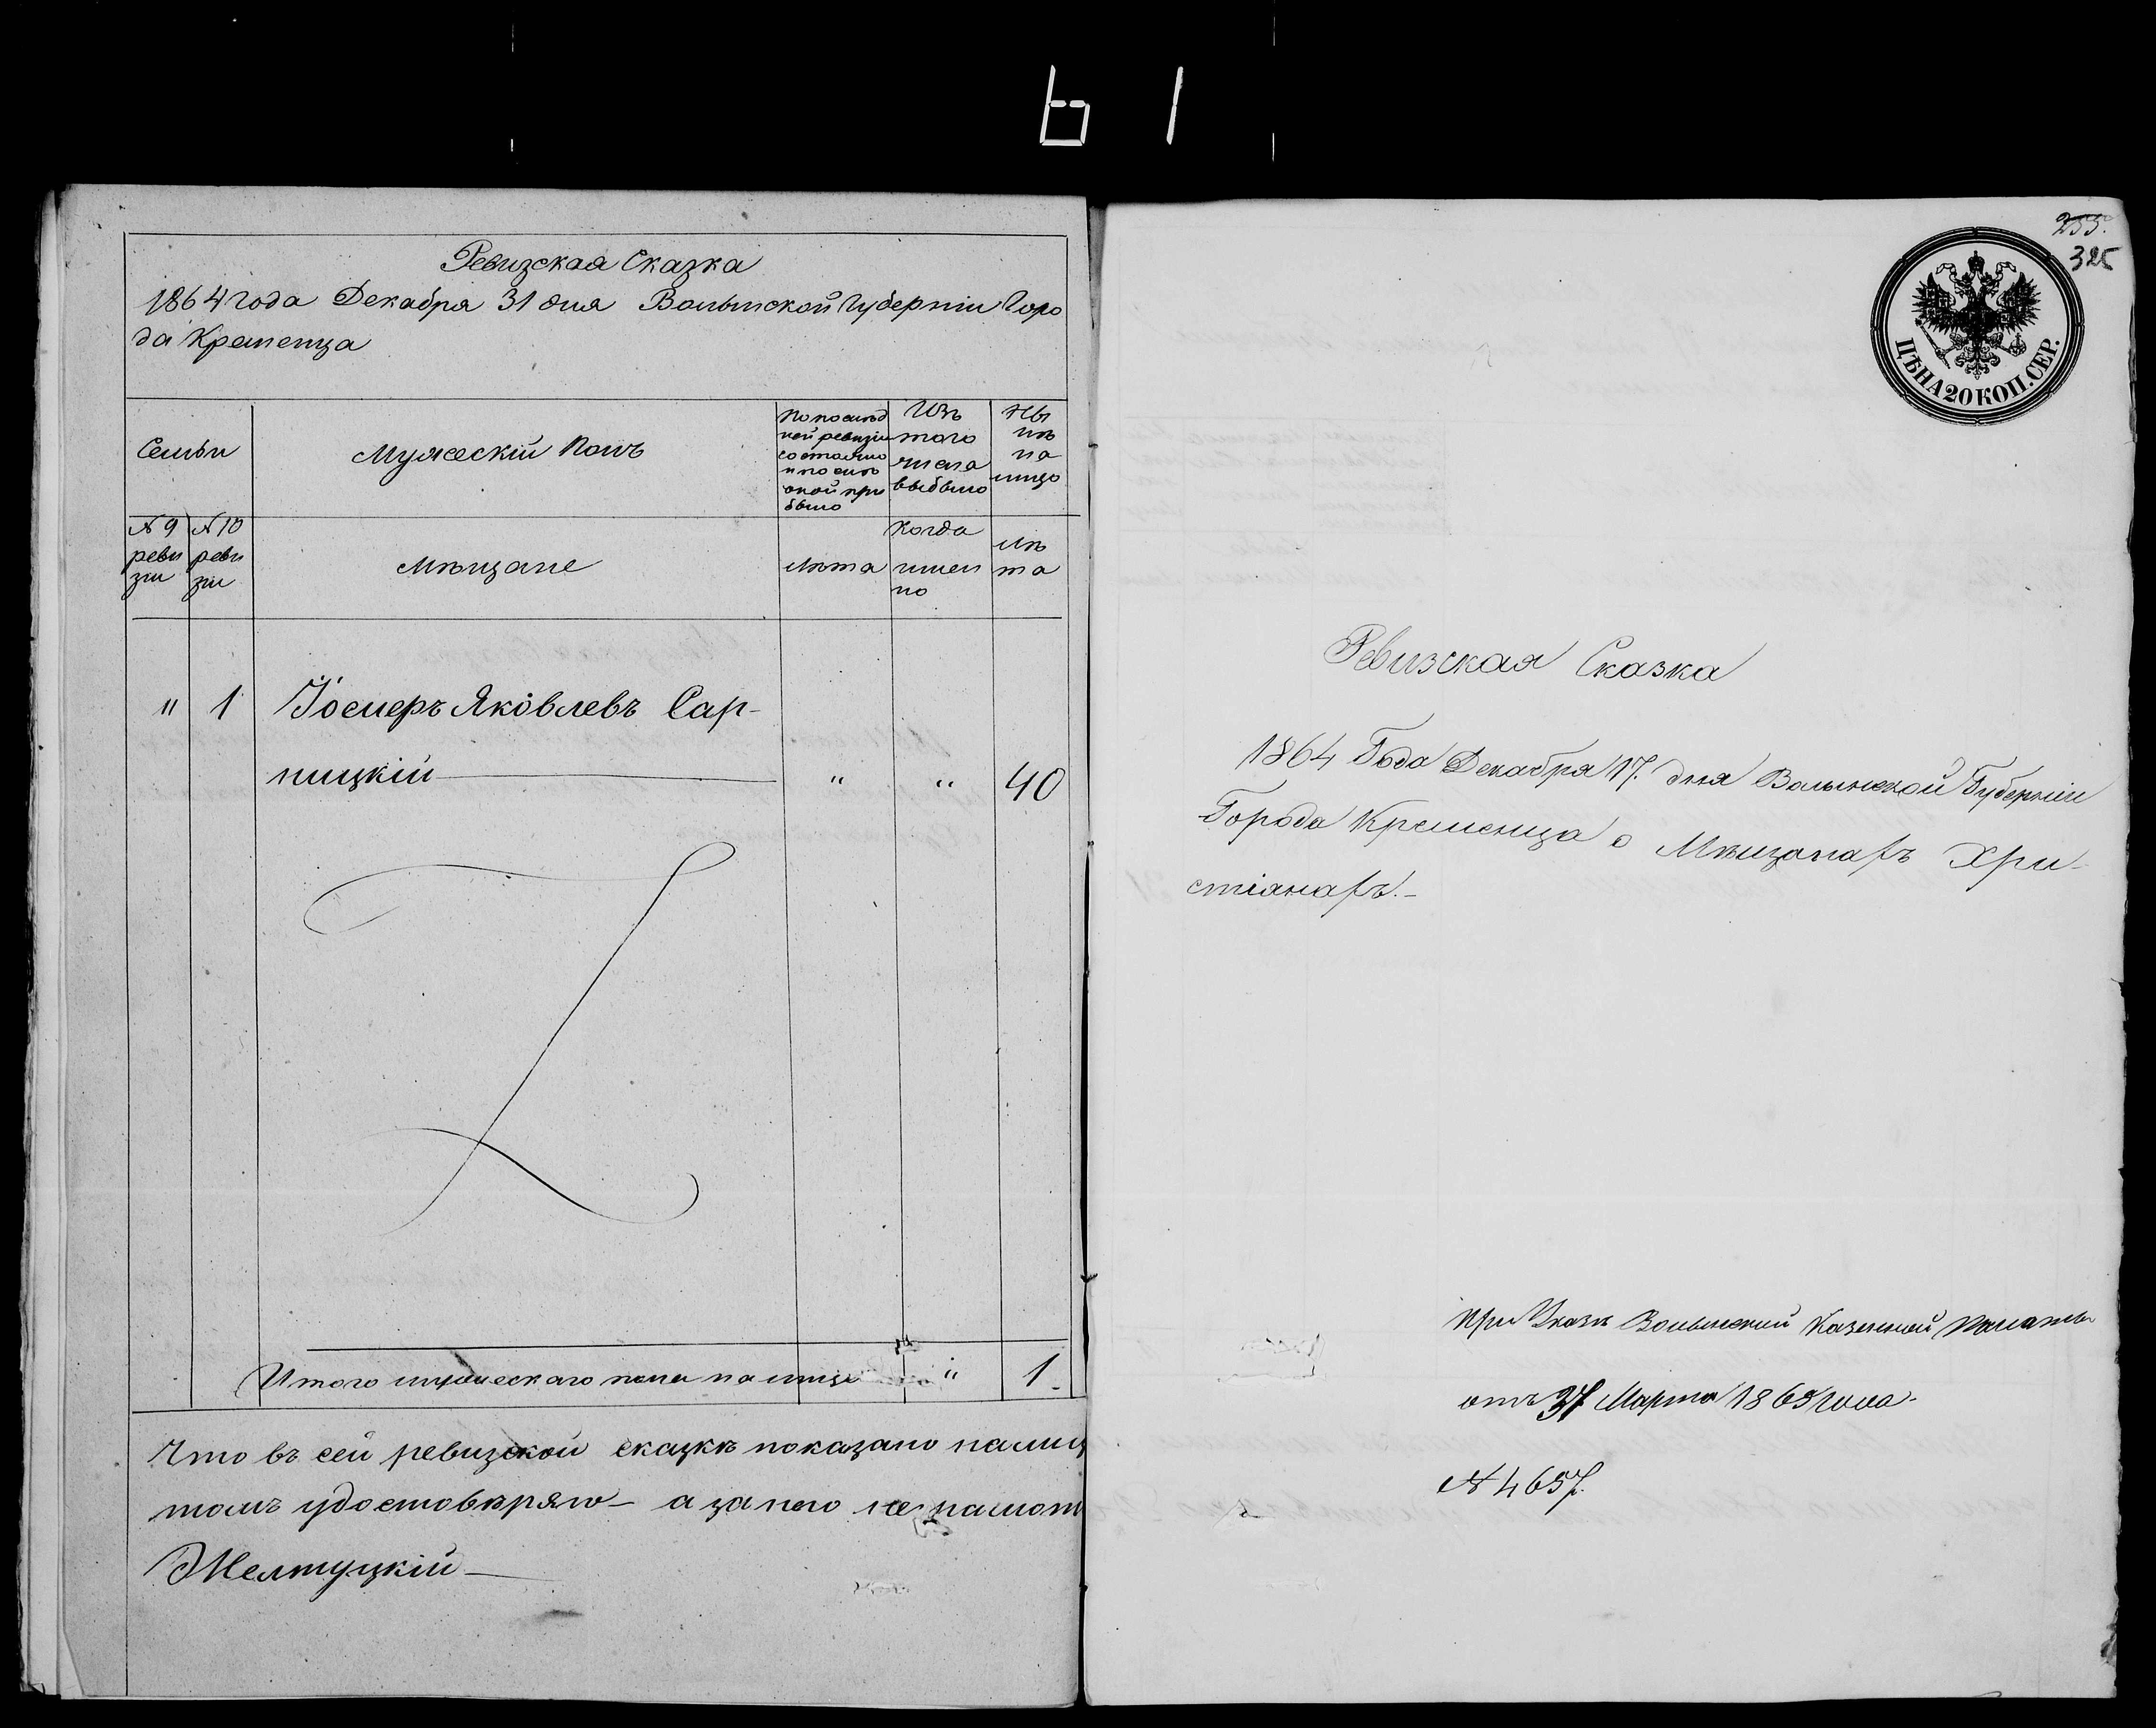 61
Ревизская Сказка
1864 года Декабря 31 дня Волынской Губерніи Горо
да Кременца
Семьи
Мужескій Полъ
По послѣд
ней ревизіи
состояло
и послѣ
оной при
было
Изъ
того
числа
выбыло
Ны
нѣ
на
лицо
№ 9
реви
зіи
№ 10
реви
зіи
Мѣщане
Лѣта
Когда
имен
но
Лѣ
та
" 1 Яковлевъ Сар-
ницкій " " 40
Итого мужескаго пола на лицо " 1.
Что въ сей ревизской сказкѣ показано на лиц
томъ удостовѣряю – а за него не
Желтуцкій
255.
325
ЦѢНА 20 КОП. СЕР.
Ревизская Сказка
1864 Года Декабря 17. дня Волынской Губерніи
Города Кременца о Мѣщанахъ Хри-
стіанахъ.-
При Указѣ Волынской Казенной Палаты
отъ 31 Марта 1865 года.
№ 4657.